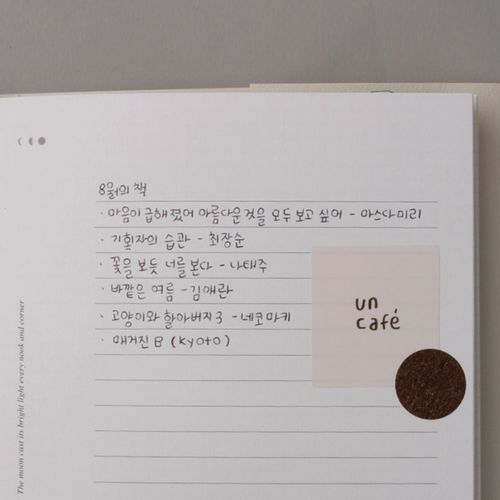 8월의 책
· 마음이 급해졌어 아름다운것을 모두 보고 싶어 - 마스다미리
· 기획자의 습관 - 최장순
· 꽃을 보듯 너를 본다 - 나태주
· 바깥은 여름 - 김애란
· 고양이와 할아버지3 - 네코마키
· 매거진 B (kyoto)
un
café
The moon cast its bright light every nook and corner